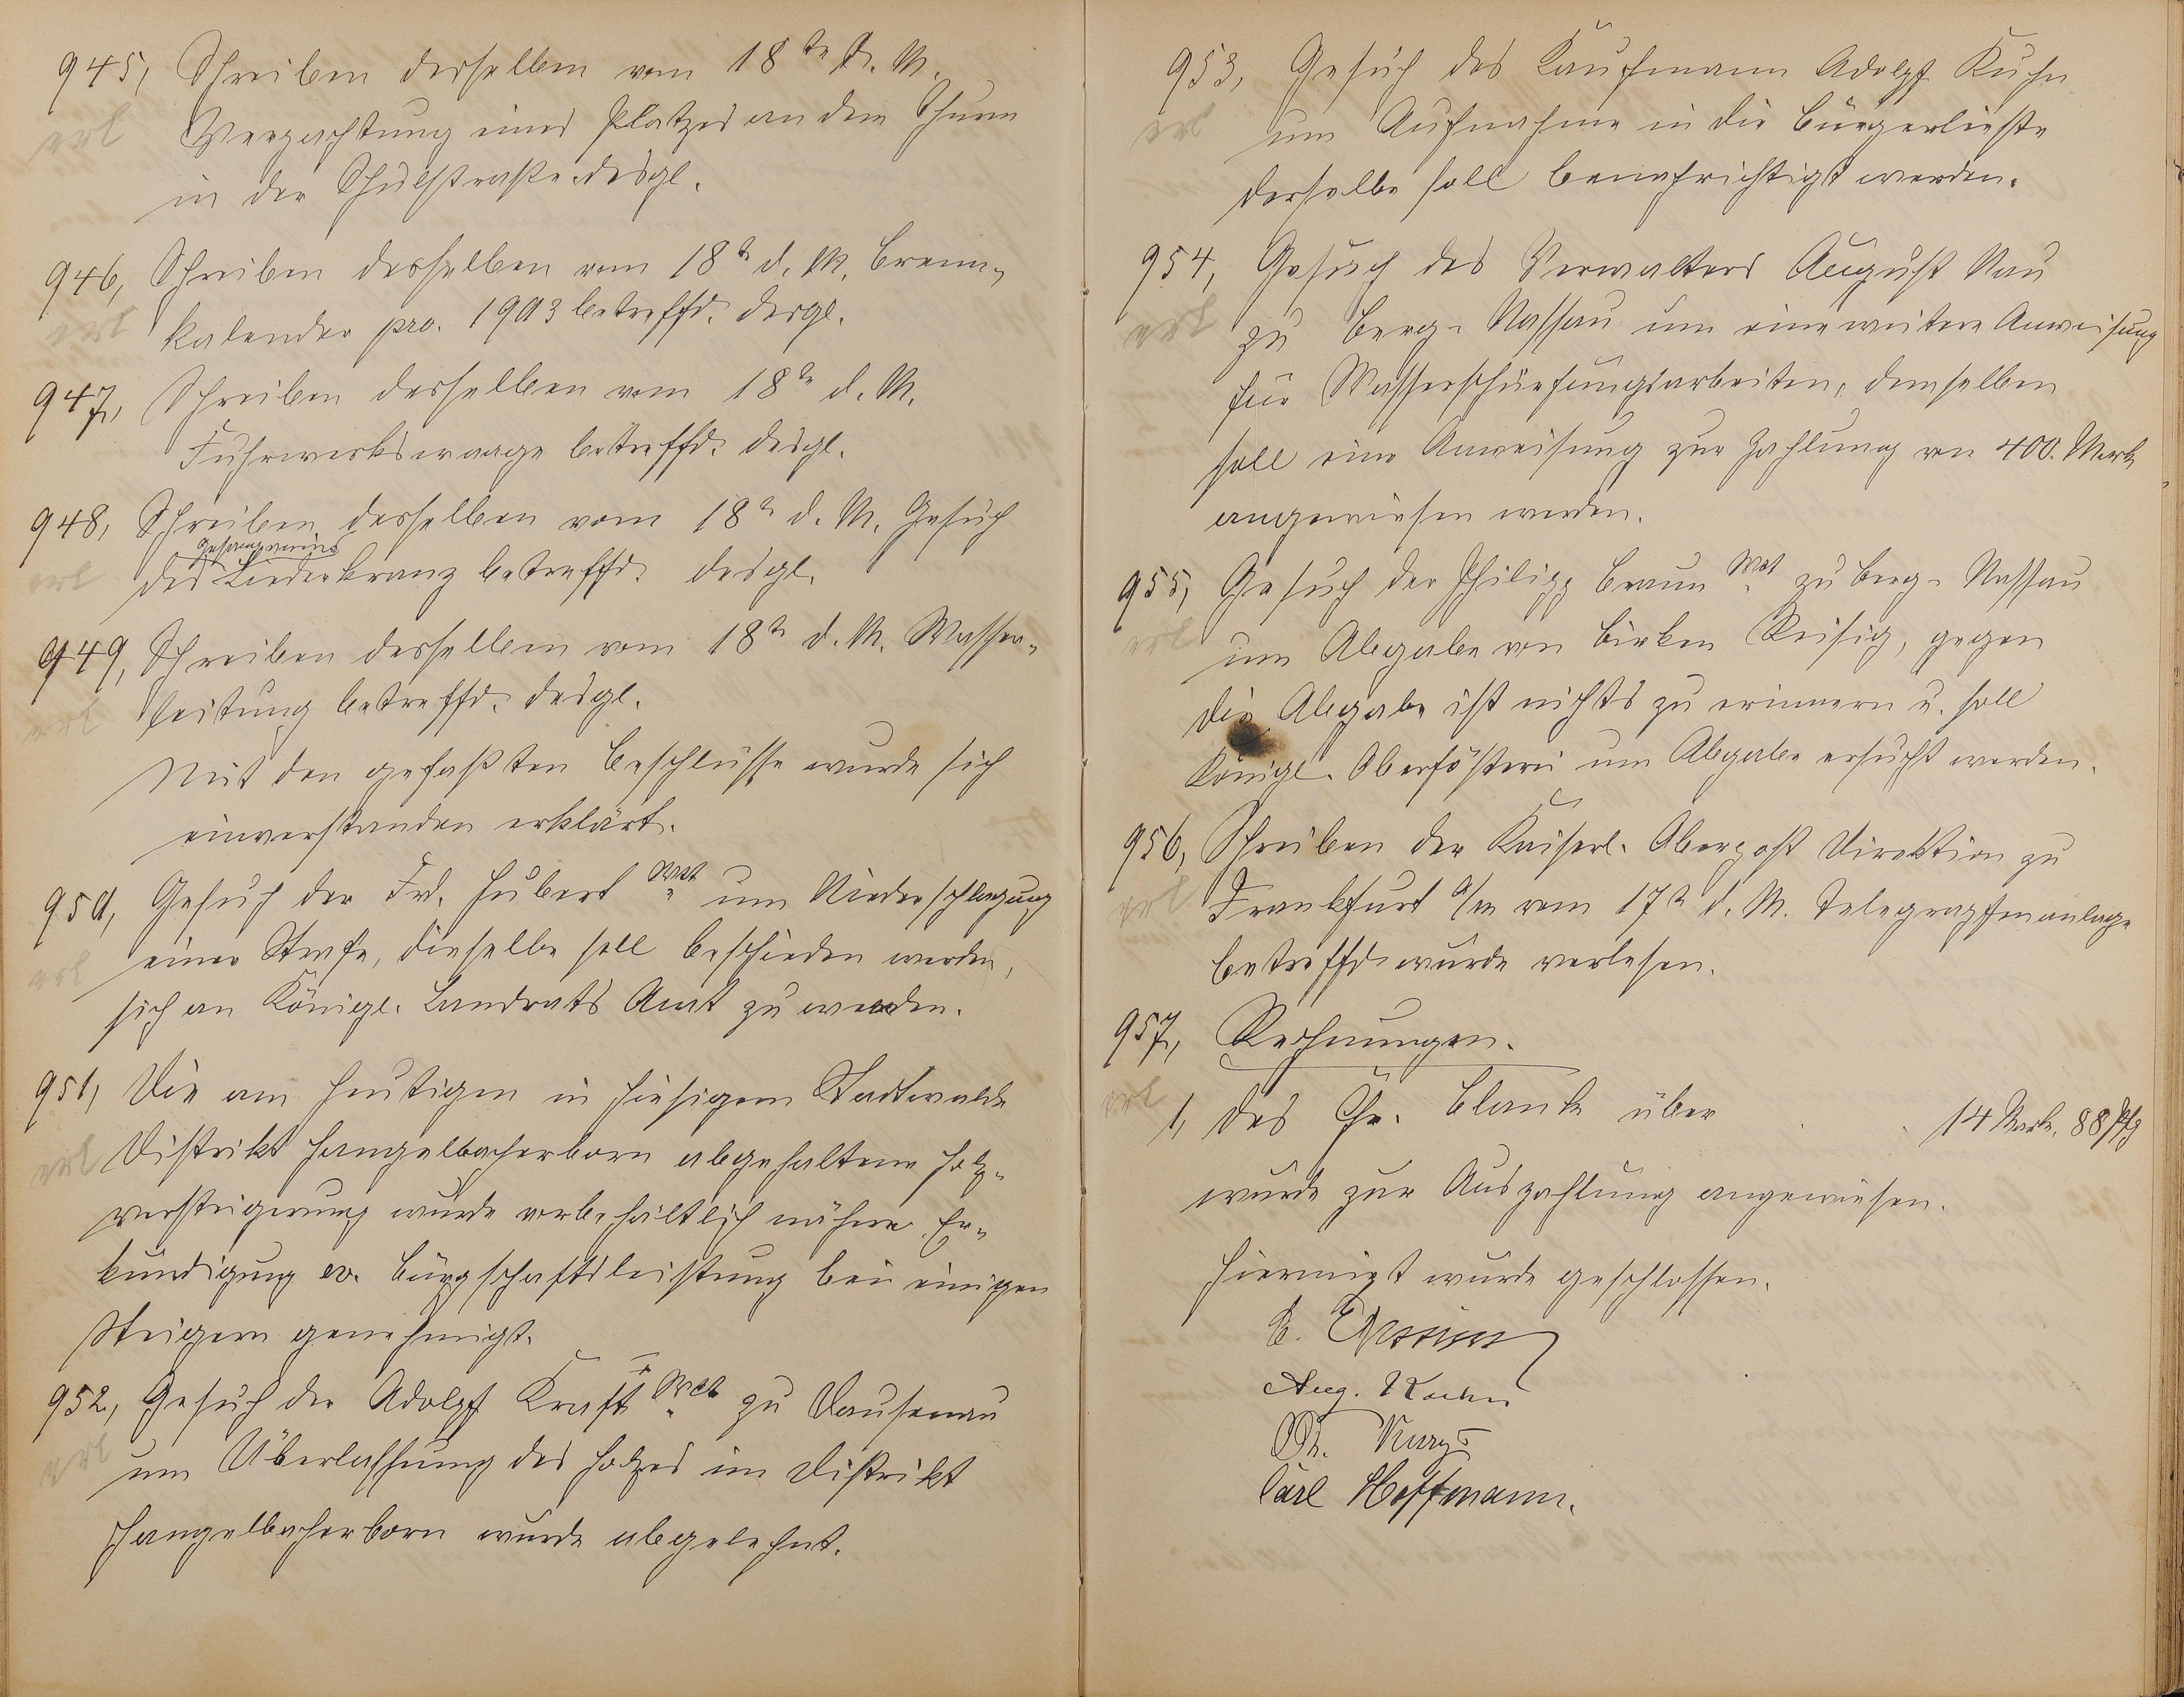 945, Schreiben desselben vom 18ten d. M.
erl Verpachtung eines Platzes an dem Thurm
in der Schulstraße desgl.
946, Schreiben desselben vom 18tn d. M. Brenn-
erl kalender pro. 1903 betreffd. desgl.
947, Schreiben desselben vom 18tn d. M.
Fuhrwerkswaage betreffd. desgl.
948, Schreiben desselben vom 18tn d. M. Gesuch
Gesangvereins
erl des Liederkranz betreffd. desgl.
949, Schreiben desselben vom 18tn d. M. Wasser-
erl leitung betreffd. desgl.
Mit den gefaßten Beschlüsse wurde sich
einverstanden erklärt.
950, Gesuch der Frd. Hubert Wwe um Niederschlagung
erl einer Strafe, dieselbe soll beschieden werden,
sich an Königl. Landrats Amt zu wenden.
951, Die am heutigen in hiesigem Stadtwalde
erl Distrikt Hangelbacherborn abgehaltene Holz-
versteigerung wurde vorbehältlich nähere Er-
kundigung ev. Bürgschaftsleistung bei einigen
Steigern genehmigt.
952, Gesuch der Adolph Kraft I Wwe zu Dausenau
erl um Überlassung des Holzes im Distrikt
Hangelbacherborn wurde abgelehnt.
953, Gesuch des Kaufmann Adolph Kuhn
erl um Aufnahme in die Bürgerlieste
derselbe soll benachrichtigt werden.
954, Gesuch des Verwalters August Nau
erl zu Berg-Nassau um eine weitere Anweisung
für Wasserschürfungsarbeiten, demselben
soll eine Anweisung zur Zahlung von 400. Mark
angewiesen werden.
955, Gesuch der Philipp Braun Wwe zu Berg-Nassau
erl um Abgabe von Birken Reisig, gegen
die Abgabe ist nichts zu erinnern u. soll
Königl. Oberfösterei um Abgabe ersucht werden.
956, Schreiben der Kaiserl. Oberpost Direktion zu
erl Frankfurt a/m vom 17tn d. M. Telegraphenanlage
betreffd. wurde verlesen.
957, Rechnungen.
erl 1, des Chr. Blank über 14 Mark. 88 Pfg
wurde zur Auszahlung angewiesen.
Hiermit wurde geschlossen.
Aug. Kuhn
Carl Hoffmann.